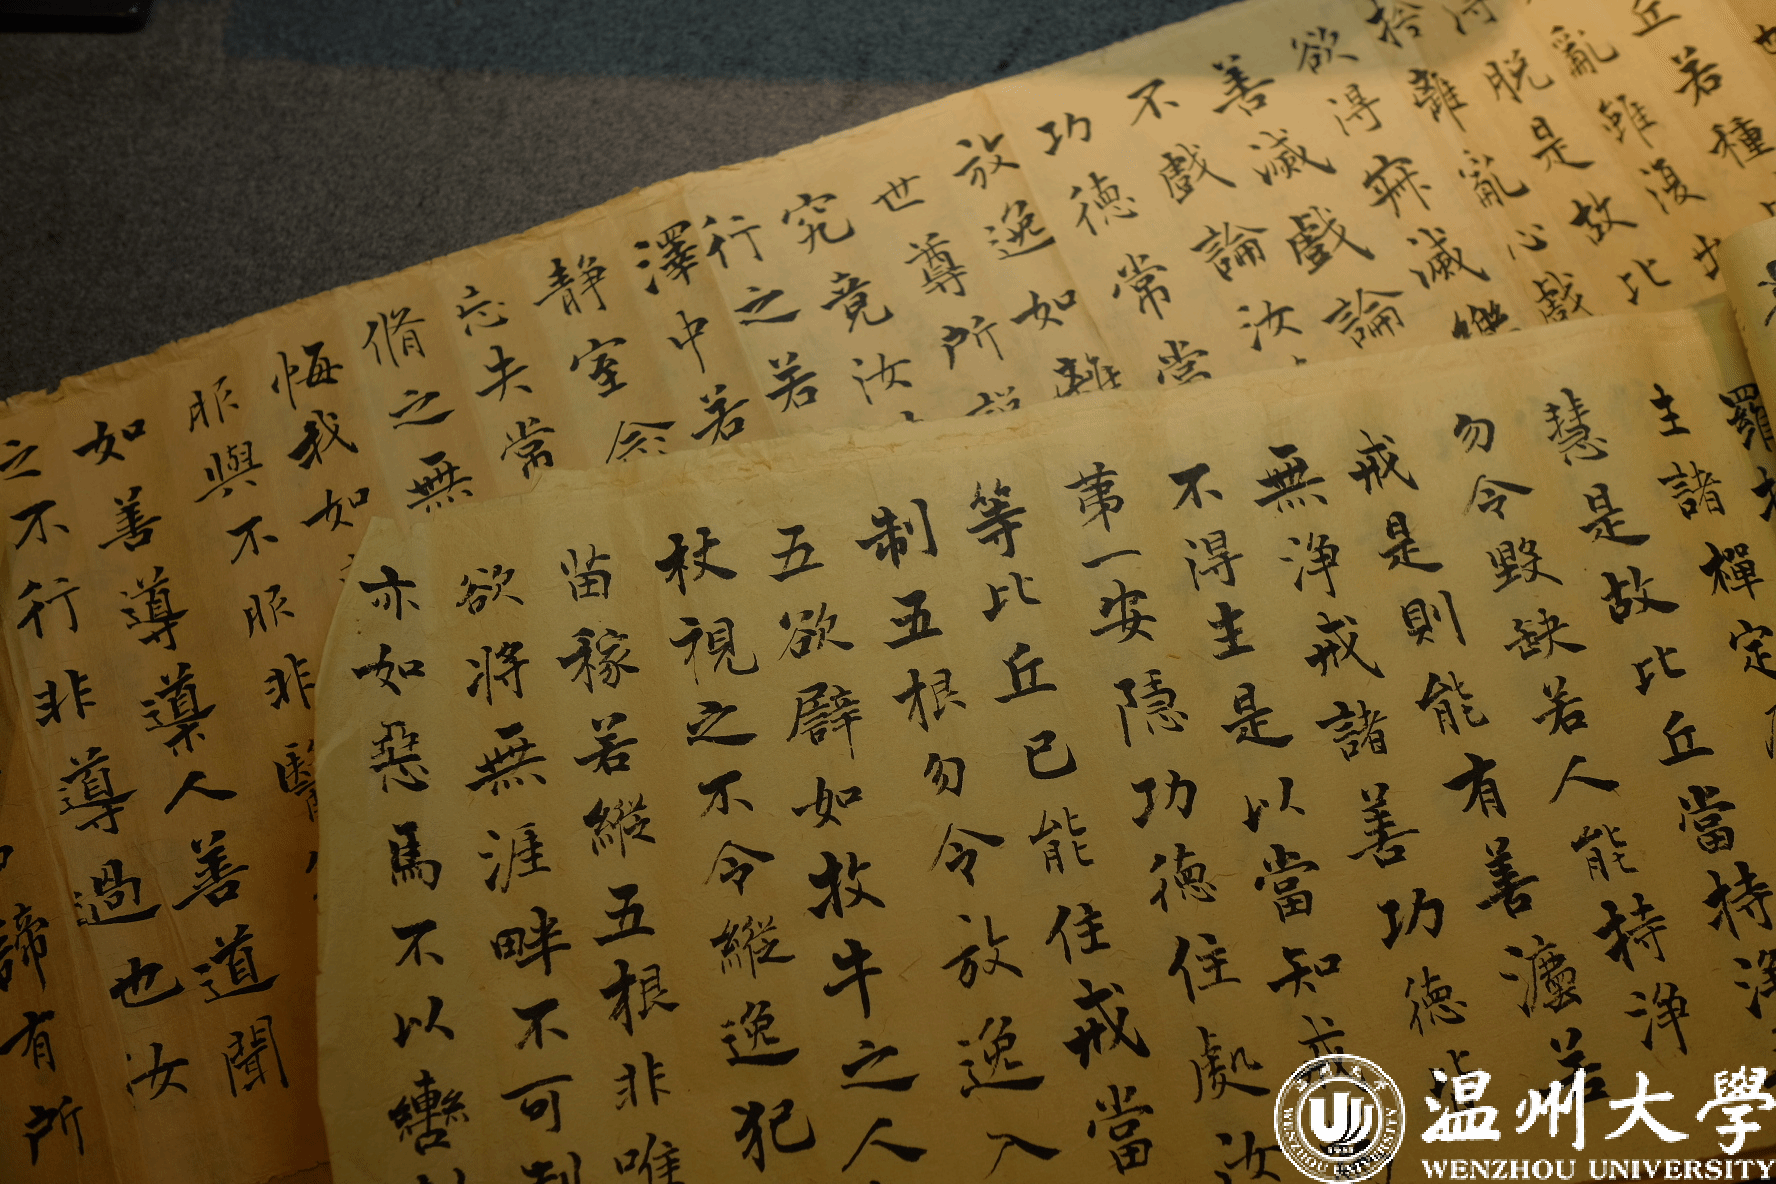 丘若種
亂雖復
得脫是故比
捨離亂心戲
欲得寂滅樂
善滅戲論
不戲論汝
功德常當
放逸如離
世尊所說
究竟汝
行之若
澤中若
靜室念
忘失常
脩之無
悔我如
服與不服非醫
如善導導人善道聞
之不行非導過也汝
諦有所
羅
生諸禪定
慧是故比丘當持淨
勿令毀缺若人能持淨
戒是則能有善灋若
無淨戒諸善功德
不得生是以當知戒
第一安隱功德住處汝
等比丘已能住戒當
制五根勿令放逸入
五欲譬如牧牛之人
杖視之不令縱逸犯
苗稼若縱五根非唯
欲將無涯畔不可制
亦如惡馬不以轡
温州大學
WENZHOU UNIVERSITY